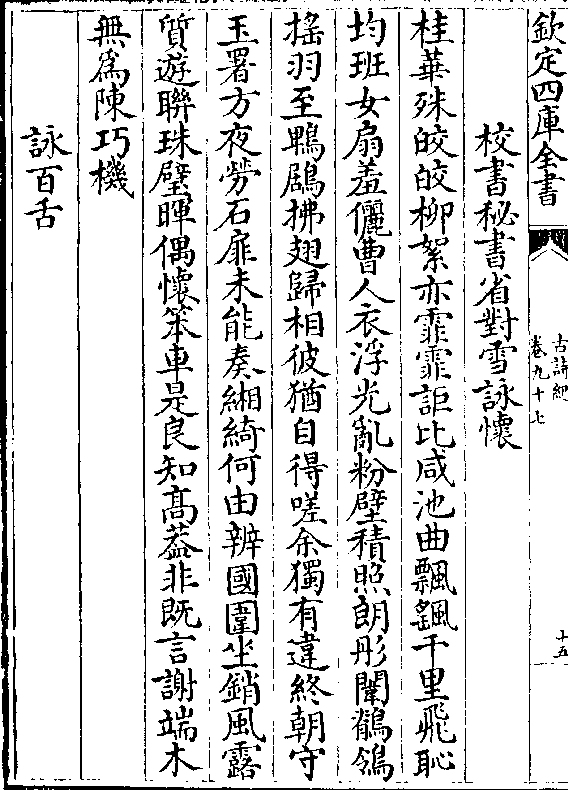 欽定四庫全書
古詩紀
卷九十七
十五
校書秘書省對雪詠懷
桂華殊皎皎柳絮亦霏霏詎比咸池曲飄颻千里飛恥
均班女扇羞儷曹人衣浮光亂粉壁積照朗彤闈鶺鴒
搖羽至鵯鶋拂翅歸相彼猶自得嗟余獨有違終朝守
玉署方夜勞石扉未能奏緗綺何由辨國圍坐銷風露
質遊聯珠璧暉偶懷笨車是良知髙葢非既言謝端木
無為陳巧機
詠百舌